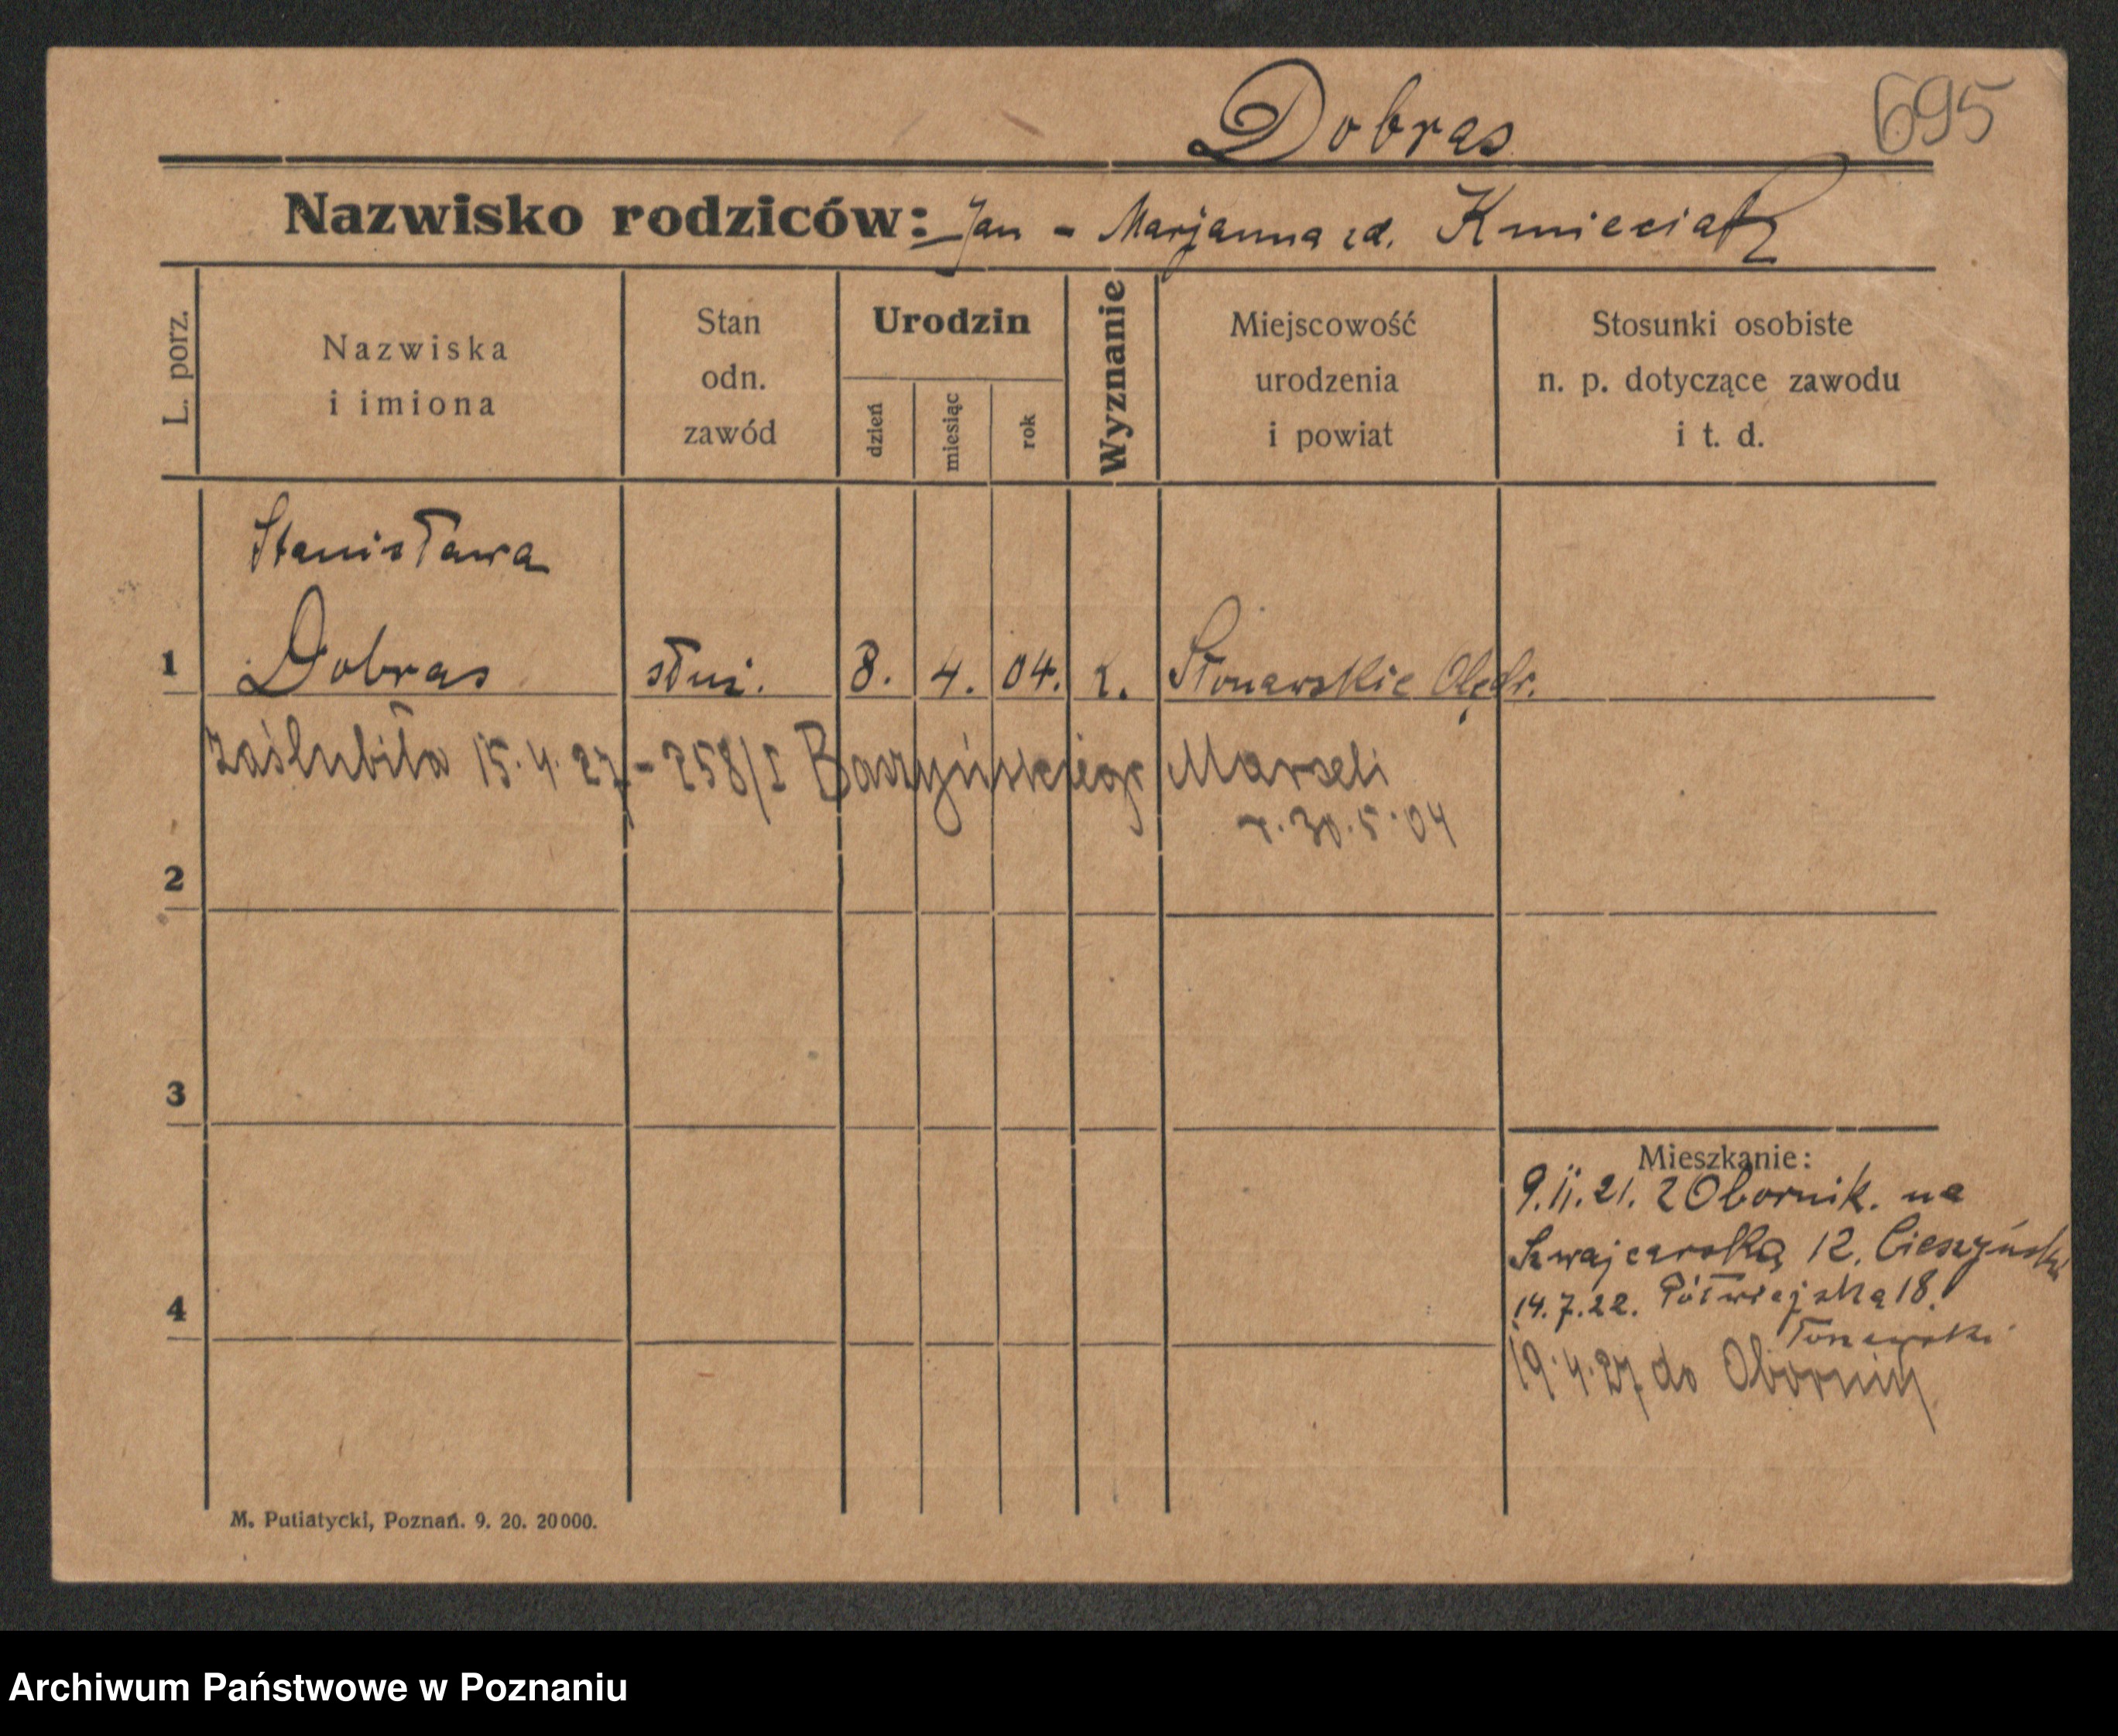 695
Dobras
Nazwisko rodziców: Jan - Marjanna zd. Kmieciak
L. porz.
Nazwiska
i imiona
Stan
odn.
zawód
Urodzin
dzień
miesiąc
rok
Wyznanie
Miejscowość
urodzenia
i powiat
Stosunki osobiste
n. p. dotyczące zawodu
i t. d.
Stanisława
1 Dobras służ. 8. 4. 04. k. Słonawskie Olędr.
zaślubiła 15.4.27 - 258/I Marceli
r. 30.5.04
2
3
4
Mieszkanie:
9.11.21. z Obornik. na
Szwajcarską 12. Cieszyński
14.7.22. Półwiejska 18.
19.4.27 do Obornik
M. Putiatycki, Poznań. 9. 20. 20000.
Archiwum Państwowe w Poznaniu